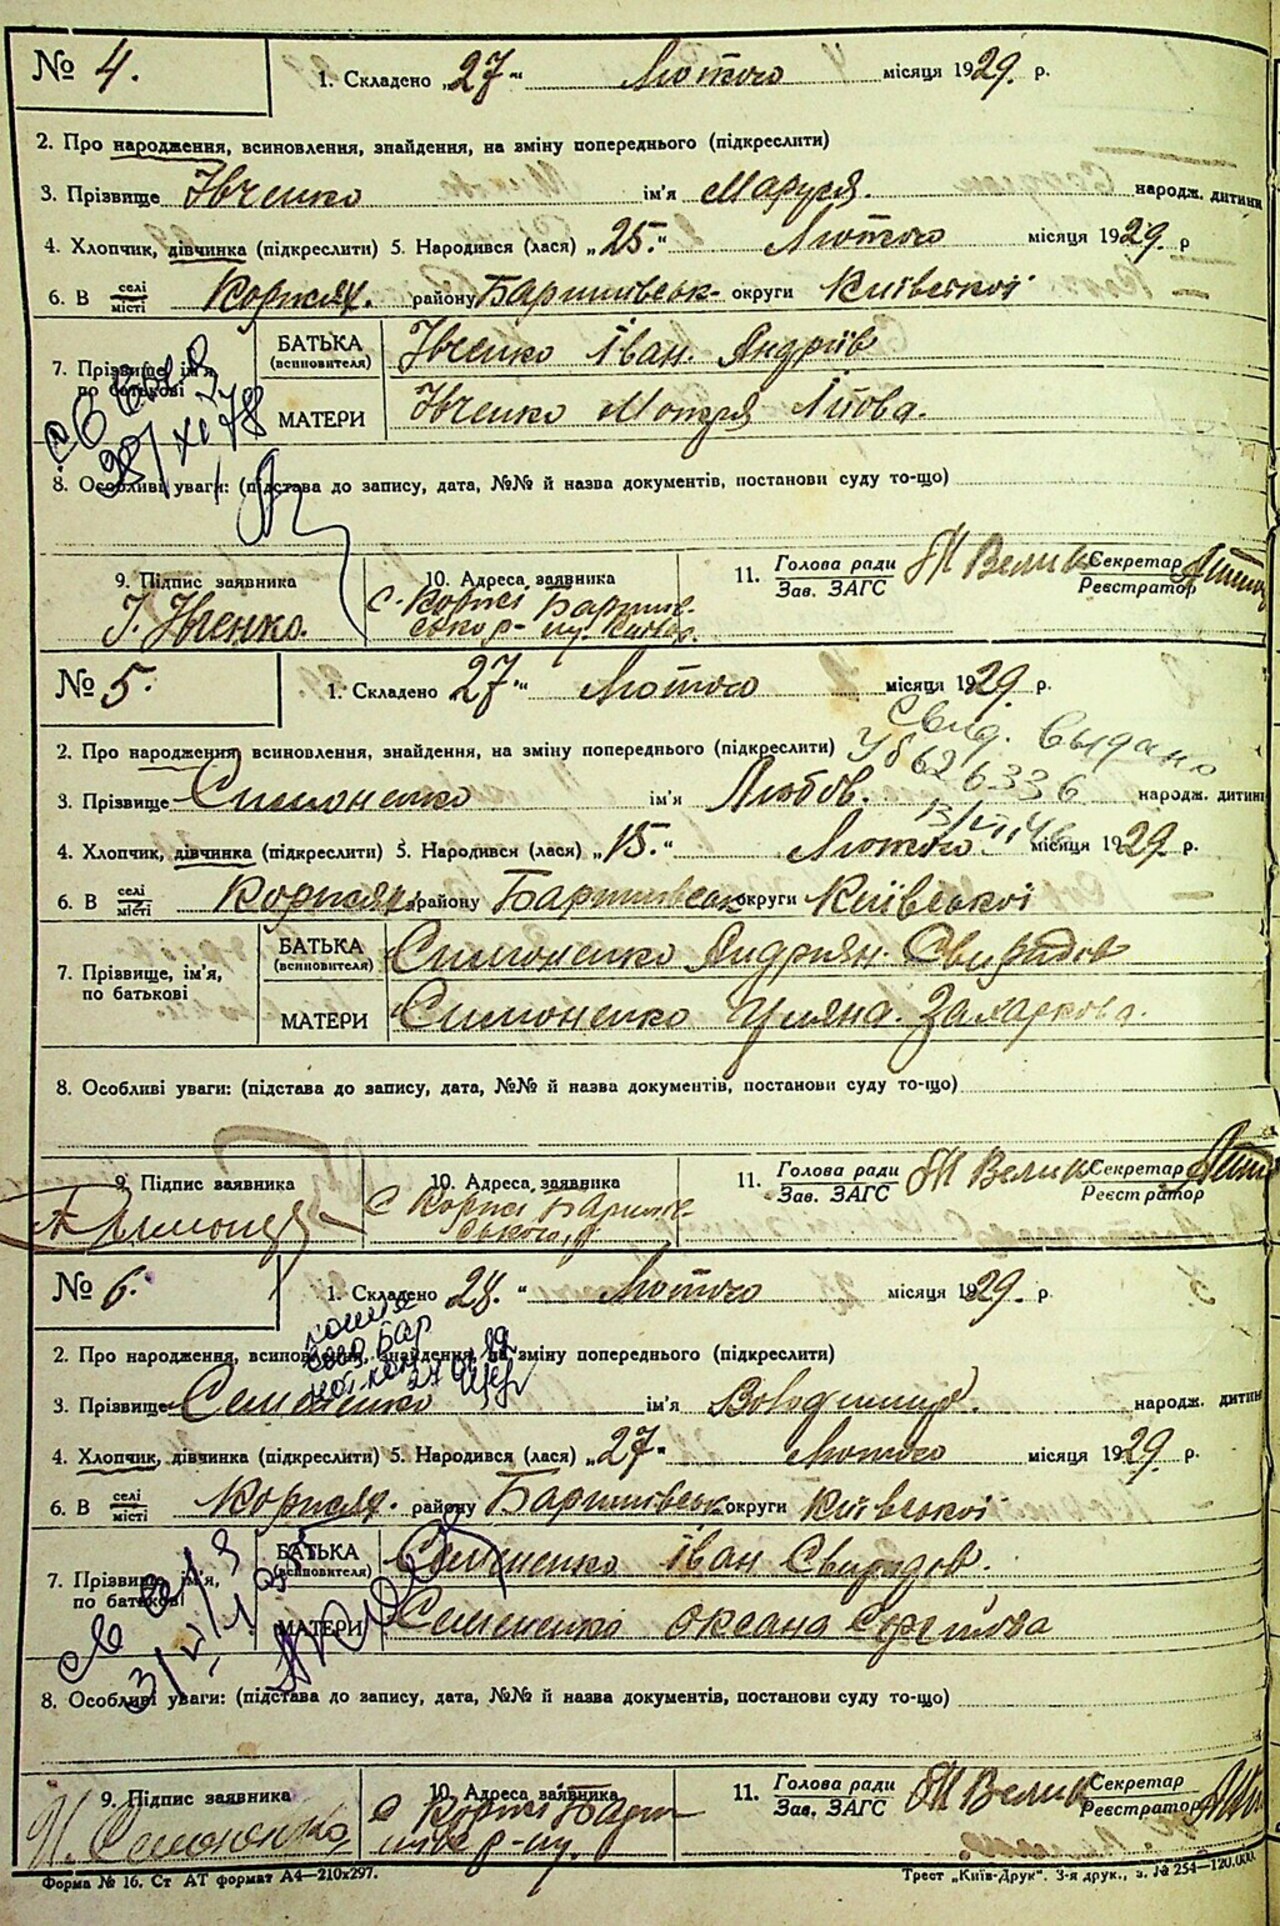 № 4.
1. Складено „27“ Лютого місяця 1929. р.
2. Про народження, всиновлення, знайдення, на зміну попереднього (підкреслити)
3. Прізвище Івченко ім'я Маруся. народж. дитини
4. Хлопчик, дівчинка (підкреслити) 5. Народився (лася) „25.“ Лютого місяця 1929. р
6. В селі місті Коржах. району Баришівськ- округи Київської
7. Прізвище, ім'я, по батькові
БАТЬКА (всиновителя) Івченко Іван. Андріїв
МАТЕРИ Івченко Мотря
28/XI 78
8. Особливі уваги: (підстава до запису, дата, №№ й назва документів, постанови суду то-що)
9. Підпис заявника
І. Івченко.
10. Адреса заявника
с. Коржі Баришів-
11. Голова ради Зав. ЗАГС Велик Секретар Реєстратор
№ 5.
1. Складено 27“ Лютого місяця 1929. р.
2. Про народження, всиновлення, знайдення, на зміну попереднього (підкреслити)
Свид. выдано
УБ 626336
3. Прізвище Симоненко ім'я Любов. народж. дитини
4. Хлопчик, дівчинка (підкреслити) 5. Народився (лася) „15.“ Лютого місяця 1929. р.
6. В селі місті Коржах району Баришівськ округи Київської
7. Прізвище, ім'я, по батькові
БАТЬКА (всиновителя) Симоненко Андріян. Свиридов
МАТЕРИ Симоненко Уляна. Захаркова.
8. Особливі уваги: (підстава до запису, дата, №№ й назва документів, постанови суду то-що)
9. Підпис заявника
10. Адреса заявника
с Коржі Баришів-
ського р
11. Голова ради Зав. ЗАГС Велик Секретар Реєстратор
№ 6.
1. Складено 28.“ Лютого місяця 1929. р.
2. Про народження, всиновлення, знайдення, на зміну попереднього (підкреслити)
3. Прізвище Семененко ім'я Володимир. народж. дитини
4. Хлопчик, дівчинка (підкреслити) 5. Народився (лася) „27“ Лютого місяця 1929. р.
6. В селі місті Коржах. району Баришівськ округи Київської
7. Прізвище, ім'я, по батькові
БАТЬКА (всиновителя) Семененко Іван Свиридов.
МАТЕРИ Семененко Оксана Сергіївна
8. Особливі уваги: (підстава до запису, дата, №№ й назва документів, постанови суду то-що)
9. Підпис заявника
10. Адреса заявника
с Коржі Бари-
шівс р-ну.
11. Голова ради Зав. ЗАГС Велик Секретар Реєстратор
Форма № 16. Ст АТ формат А4—210х297.
Трест „Київ-Друк“. 3-я друк., з. № 254—120.000.